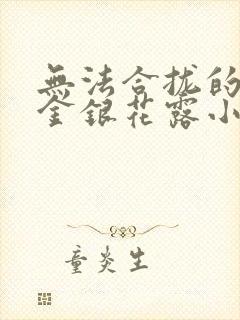 無法合拢的
金銀花露小
童炎生